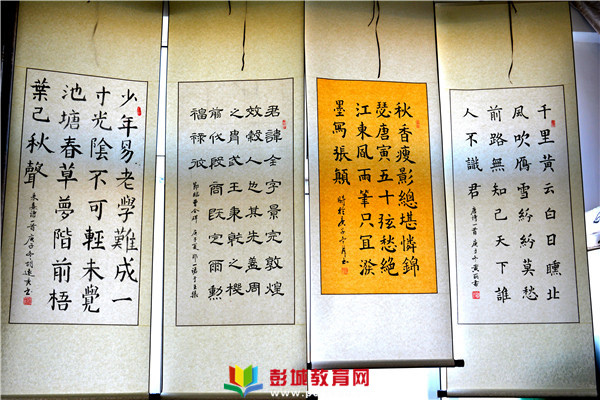 少年易老學難成一
寸光陰不可輕未覺
池塘春草夢階前梧
葉已秋聲
朱熹詩一首庚子冬
君諱全字景完敦煌
效穀人也其先蓋周
之胄武王秉乾之機
翦伐殷商既定爾勳
福祿攸
節臨曹全碑
秋香瘦影總堪憐錦
瑟唐寅五十弦愁絕
江東風雨筆只宜潑
墨寫張顛
千里黃云白日曛北
風吹雁雪紛紛莫愁
前路無知己天下誰
人不識君
彭城教育网